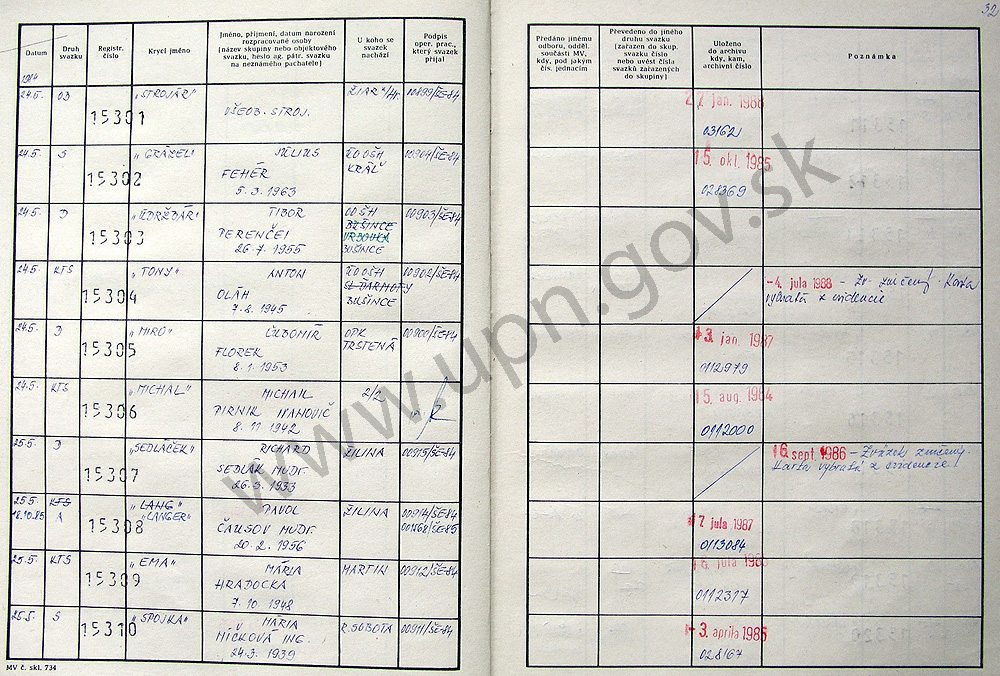 32
Datum
Druh svazku
Registr. číslo
Krycí jméno
Jméno, příjmení, datum narození
rozpracované osoby
(název skupiny nebo objektového
svazku, heslo ag. pátr. svazku
na neznámého pachatele)
U koho se
svazek
nachází
Podpis
oper. prac.,
který svazek
přijal
Předáno jinému
odboru, odděl.
součásti MV,
kdy, pod jakým
čís. jednacím
Převedeno do jiného
druhu svazku
(zařazen do skup.
svazku číslo
nebo uvést čísla
svazků zařazených
do skupiny)
Uloženo
do archivu
kdy, kam,
archivní číslo
Poznámka
1984
24.5. OB 15301 "STROJÁR"
VŠEOB. STROJ.
ŽIAR n/Hr. 00899/ŠE-84
jan. 1986
03162
24.5. S 15302 "GRÁZEL" JÚLIUS
FEHÉR
5.3.1963
OOŠH
KRÁĽ
00904/ŠE-84
15. okt. 1985
028369
24.5. D 15303 "ÚDRŽBÁR" TIBOR
PERENČEI
26.7.1955
OO ŠH
BUŠINCE
VRBOVKA
BUŠINCE
00903/ŠE-84
24.5. KTS 15304 "TONY" ANTON
OLÁH
7.8.1945
OOŠH
SL. ĎARMOTY
BUŠINCE
00902/ŠE-84
-4. júla 1988 - Zv. zničený. Karta
vybratá z evidencie
24.5. D 15305 "MIRO" ĽUBOMÍR
FLOREK
8.1.1953
OPK
TRSTENÁ
00900/ŠE-84
3. jan. 1987
0112979
24.5. KTS 15306 "MICHAL" MICHAIL
PIRNIK IVANOVIČ
8.11.1942
2/2
15. aug. 1984
0112000
25.5. D 15307 "SEDLÁČEK" RICHARD
SEDLÁK MUDr.
26.3.1933
ŽILINA
00915/ŠE-84
16. sept. 1986 - Zväzok zničený.
Karta vybratá z evidencie!
25.5. KTS 15308 "LANG" PAVOL
18.10.85 A "LANGER"
ČAUSOV MUDr.
20.2.1956
ŽILINA
00914/ŠE-84
001468/ŠE-85
7. júla 1987
0113084
25.5. KTS 15309 "EMA" MÁRIA
HRADOCKÁ
7.10.1948
MARTIN
00912/ŠE-84
júla
0112317
25.5. S 15310 "SPOJKA" MÁRIA
MÍČKOVÁ ING.
24.3.1939
R. SOBOTA
00911/ŠE-84
-3. apríla 1985
028167
MV č. skl. 734
www.upn.gov.sk